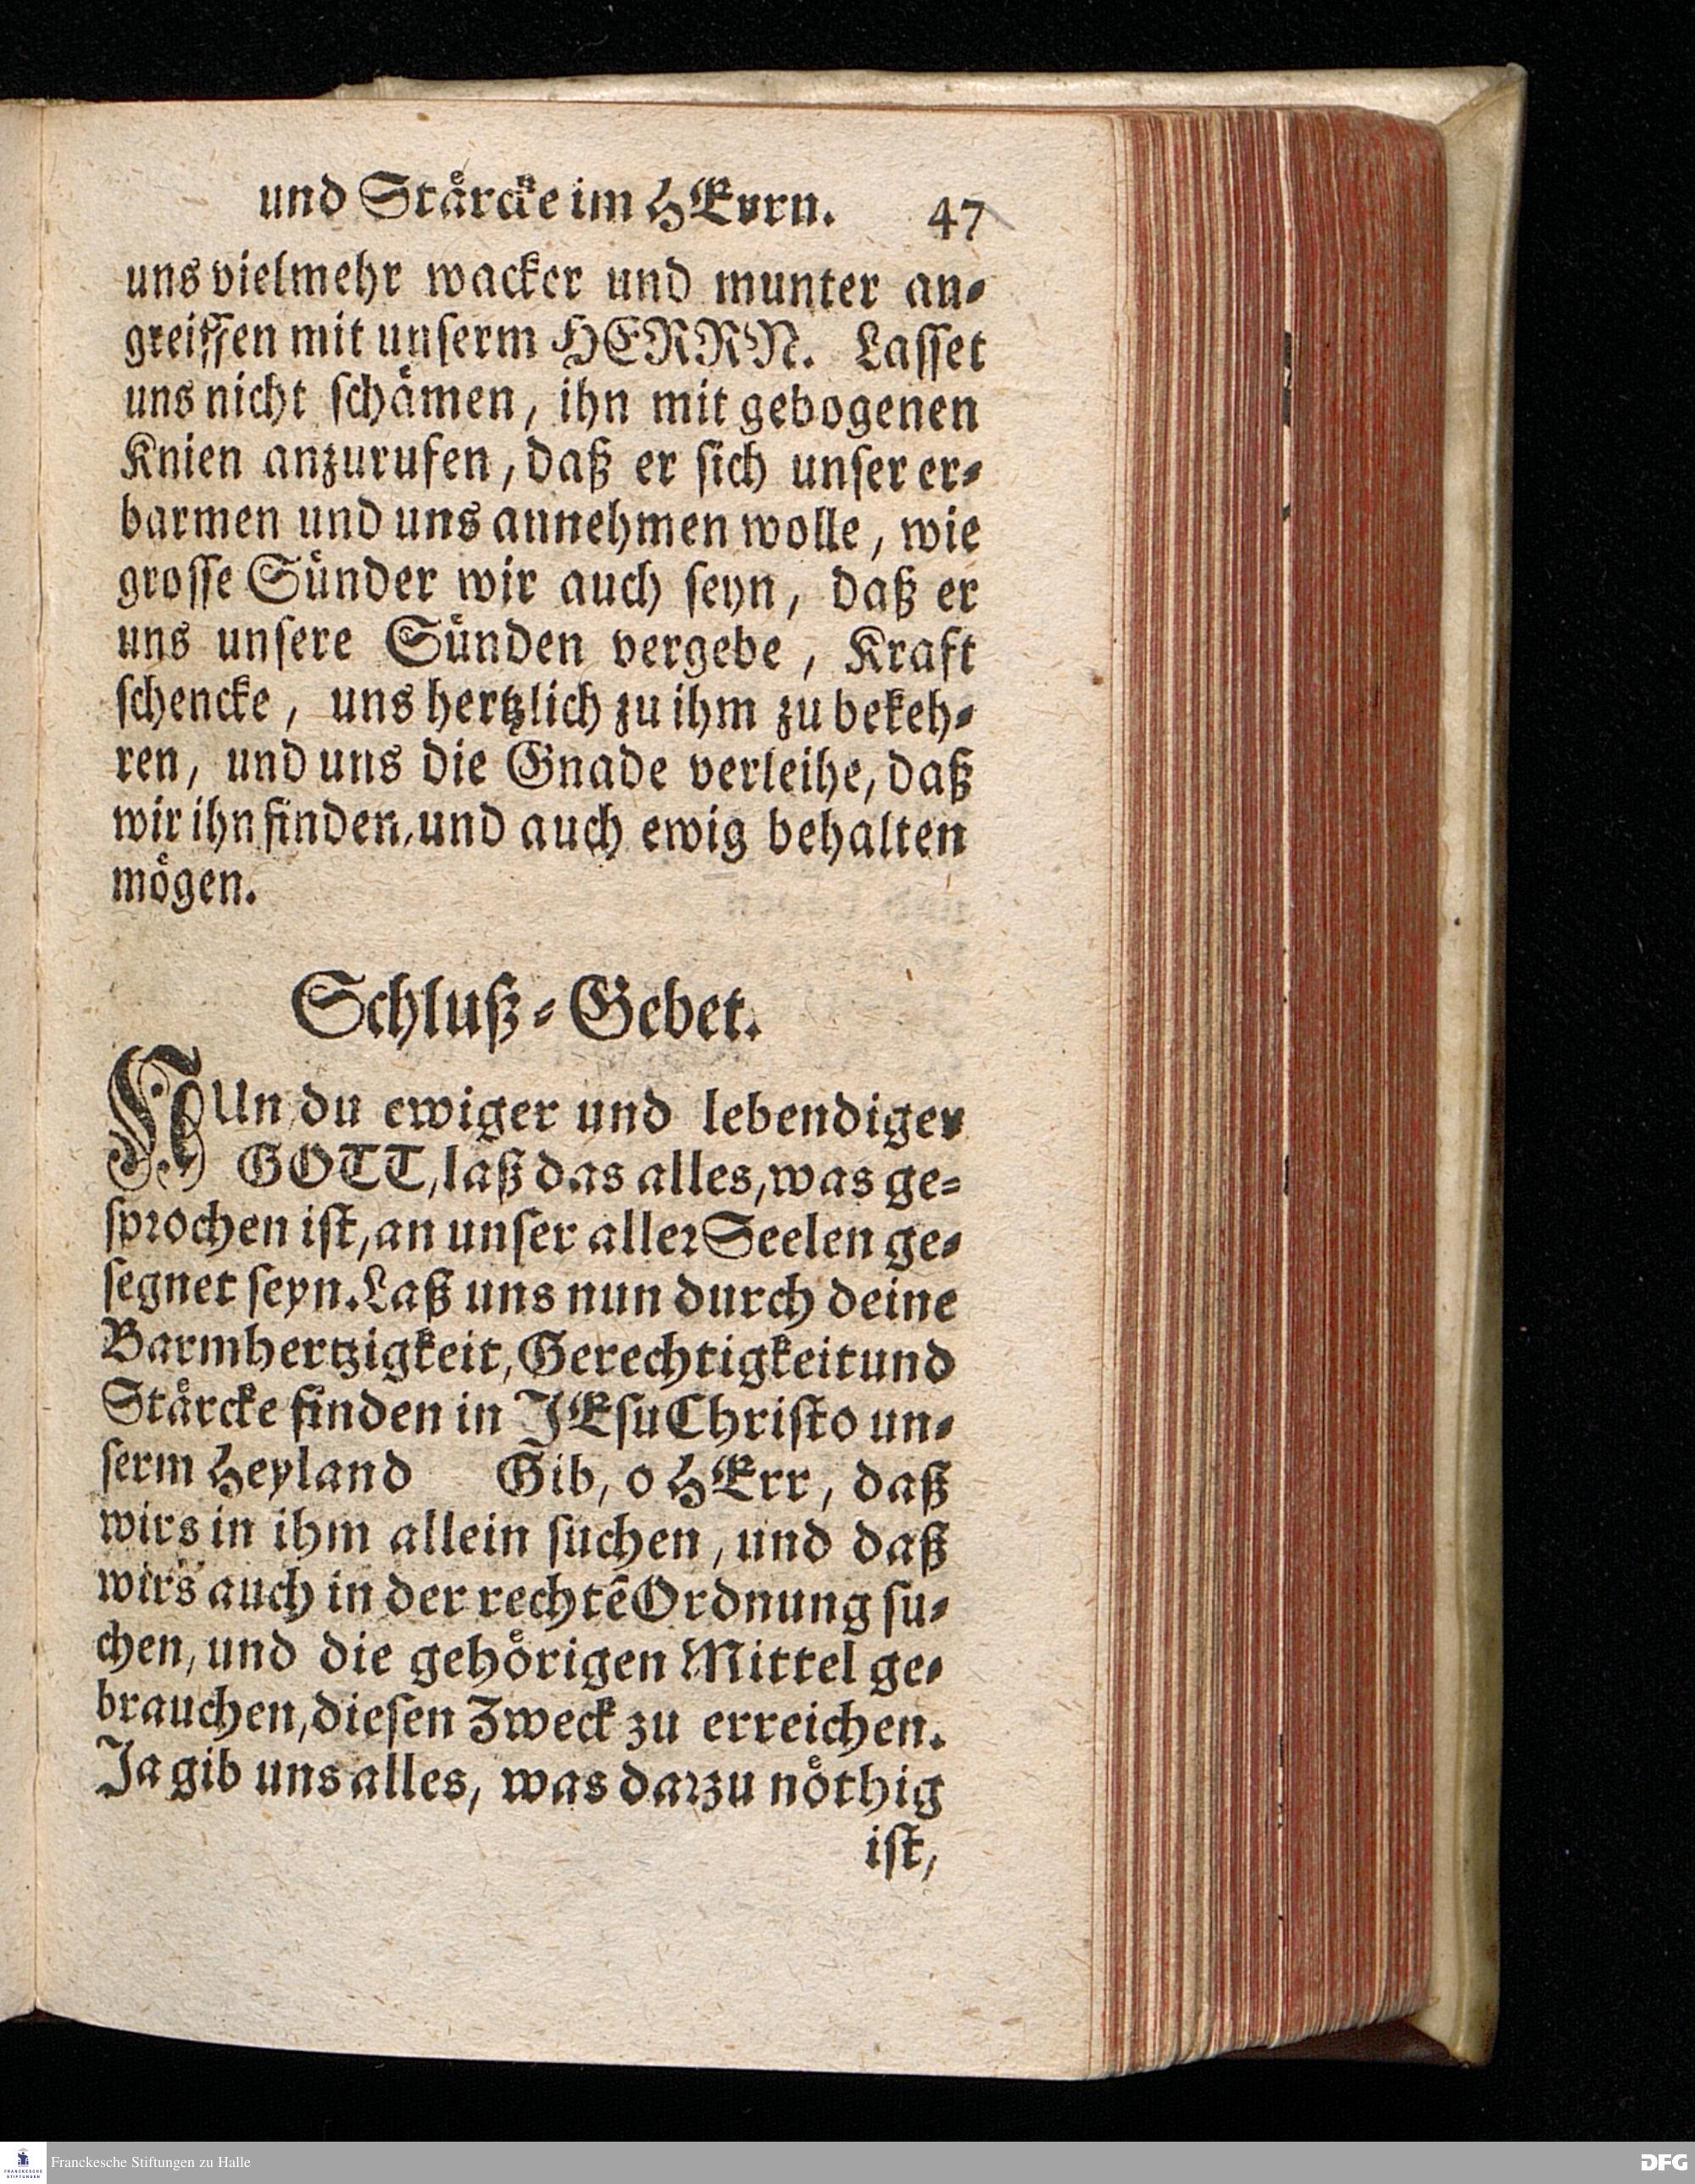 und Staͤrcke im HErrn. 47
uns vielmehr wacker und munter an⸗
greiffen mit unſerm HERRN. Laſſet
uns nicht ſchaͤmen, ihn mit gebogenen
Knien anzurufen, daß er ſich unſer er⸗
barmen und uns annehmen wolle, wie
groſſe Suͤnder wir auch ſeyn, daß er
uns unſere Suͤnden vergebe, Kraft
ſchencke, uns hertzlich zu ihm zu bekeh⸗
ren, und uns die Gnade verleihe, daß
wir ihn finden, und auch ewig behalten
moͤgen.
Schluß⸗Gebet.
NUn du ewiger und lebendiger
GOTT, laß das alles, was ge⸗
ſprochen iſt, an unſer aller Seelen ge⸗
ſegnet ſeyn. Laß uns nun durch deine
Barmhertzigkeit, Gerechtigkeit und
Staͤrcke finden in JEſu Chriſto un⸗
ſerm Heyland Gib, o HErr, daß
wirs in ihm allein ſuchen, und daß
wirs auch in der rechtē Ordnung ſu⸗
chen, und die gehoͤrigen Mittel ge⸗
brauchen, dieſen Zweck zu erreichen.
Ja gib uns alles, was darzu noͤthig
iſt,
FRANCKESCHE
STIFTUNGEN
Franckesche Stiftungen zu Halle
DFG